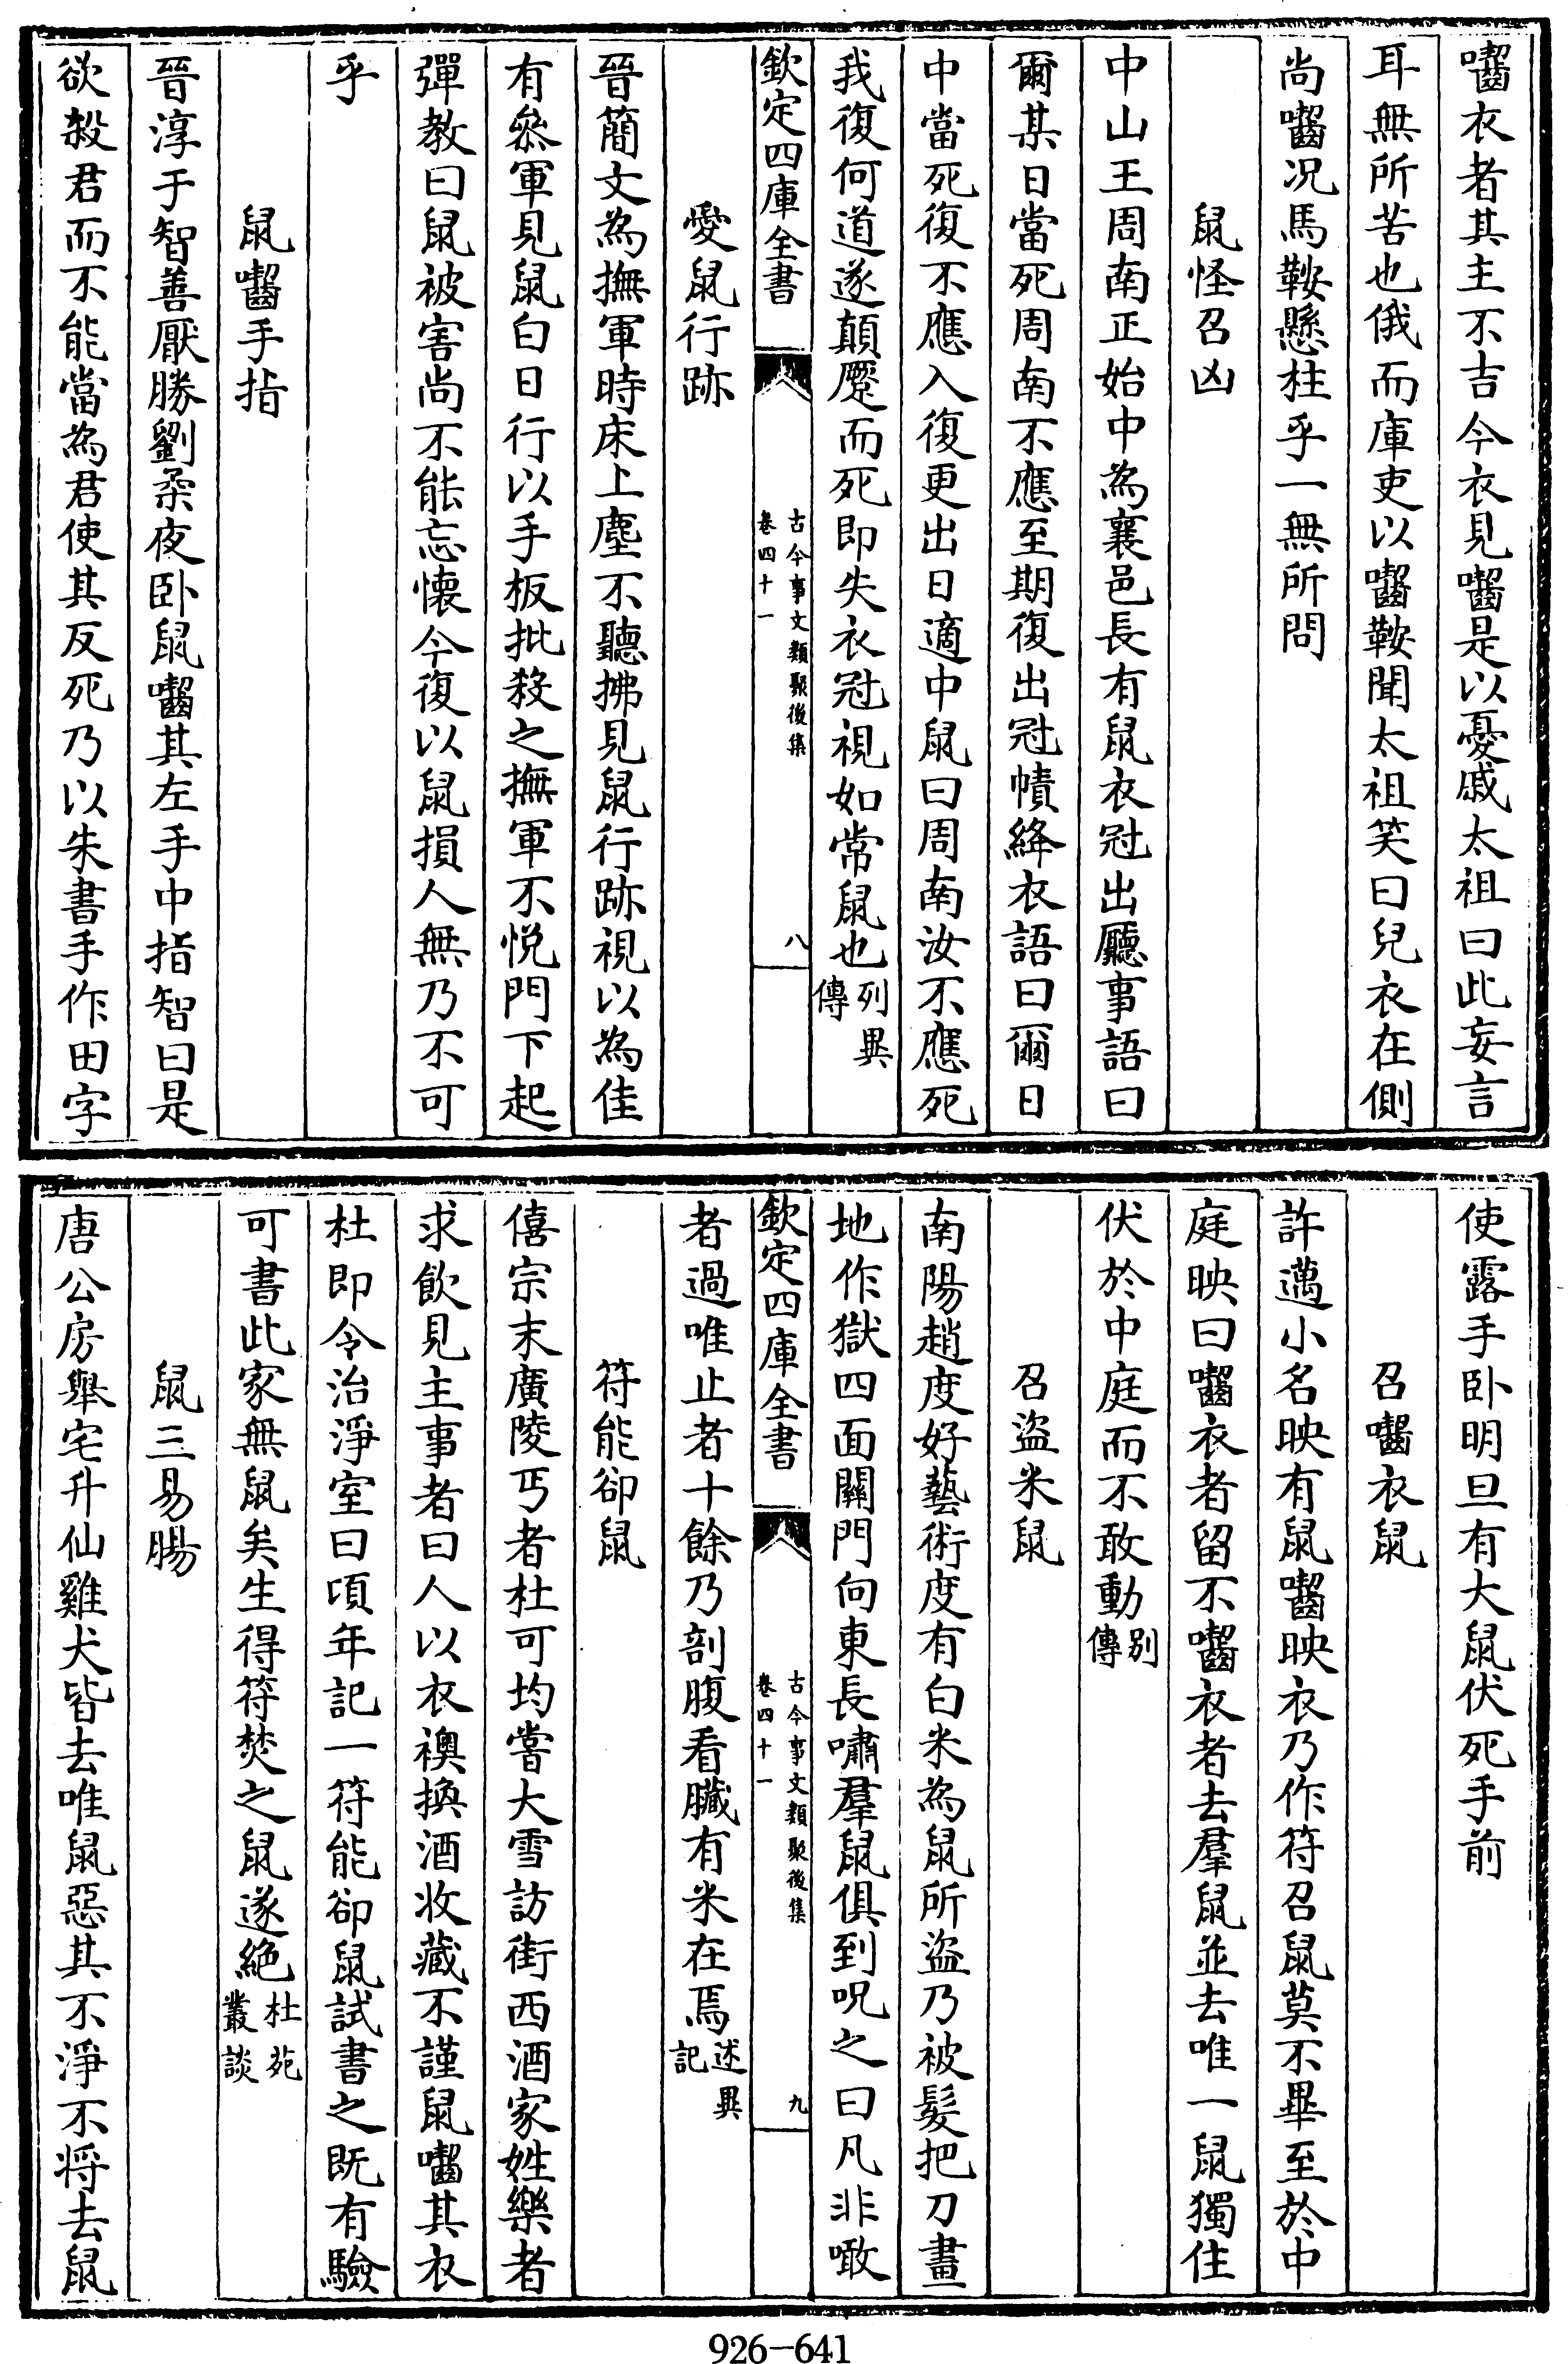 嚙衣者其主不吉今衣見嚙是以憂戚太祖曰此妄言
耳無所苦也俄而庫吏以嚙鞍聞太祖笑曰兒衣在側
尚嚙况馬鞍懸柱乎一無所問
鼠怪召凶
中山王周南正始中為襄邑長有鼠衣冠出廳事語曰
爾某日當死周南不應至期復出冠幘絳衣語曰爾日
中當死復不應入復更出日適中鼠曰周南汝不應死
我復何道遂顛蹷而死即失衣冠視如常鼠也列異傳
欽定四庫全書
古今事文類聚後集
卷四十一
八
愛鼠行跡
晉簡文為撫軍時床上塵不聽拂見鼠行跡視以為佳
有叅軍見鼠白日行以手板批殺之撫軍不悦門下起
彈教曰鼠被害尚不能忘懐今復以鼠損人無乃不可
乎
鼠嚙手指
晉淳于智善厭勝劉柔夜卧鼠嚙其左手中指智曰是
欲殺君而不能當為君使其反死乃以朱書手作田字
使露手卧明旦有大鼠伏死手前
召嚙衣鼠
許邁小名映有鼠嚙映衣乃作符召鼠莫不畢至於中
庭映曰嚙衣者留不嚙衣者去羣鼠並去唯一鼠獨住
伏於中庭而不敢動别傳
召盜米鼠
南陽趙度好藝術度有白米為鼠所盜乃被髮把刀畫
地作獄四面闢門向東長嘯羣鼠俱到呪之曰凡非噉
欽定四庫全書
古今事文類聚後集
卷四十一
九
者過唯止者十餘乃剖腹看臟有米在焉述異記
符能卻鼠
僖宗末廣陵丐者杜可均嘗大雪訪街西酒家姓樂者
求飲見主事者曰人以衣襖換酒收藏不謹鼠嚙其衣
杜即令治淨室曰頃年記一符能卻鼠試書之既有驗
可書此家無鼠矣生得符焚之鼠遂絶杜苑叢談
鼠三易腸
唐公房舉宅升仙雞犬皆去唯鼠惡其不淨不將去鼠
926-641